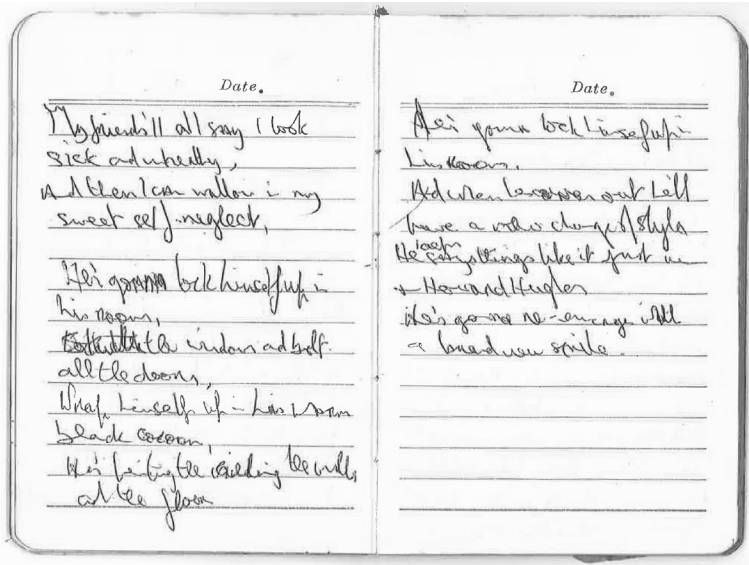 Date.
My friends'll all say I look
sick and unhealthy,
And then I can wallow in my
sweet self-neglect,
He's gonna lock himself up in
his room,
the windows and bolt
all the doors,
Wrap himself up in his warm
black cocoon,
He's painting the ceiling the walls
and the floor
Date.
He's gonna lock himself up in
his room,
And when he comes out he'll
have a change of style
He says things like it just
+ Howard Hughes
He's gonna re-emerge with
a brand new smile.